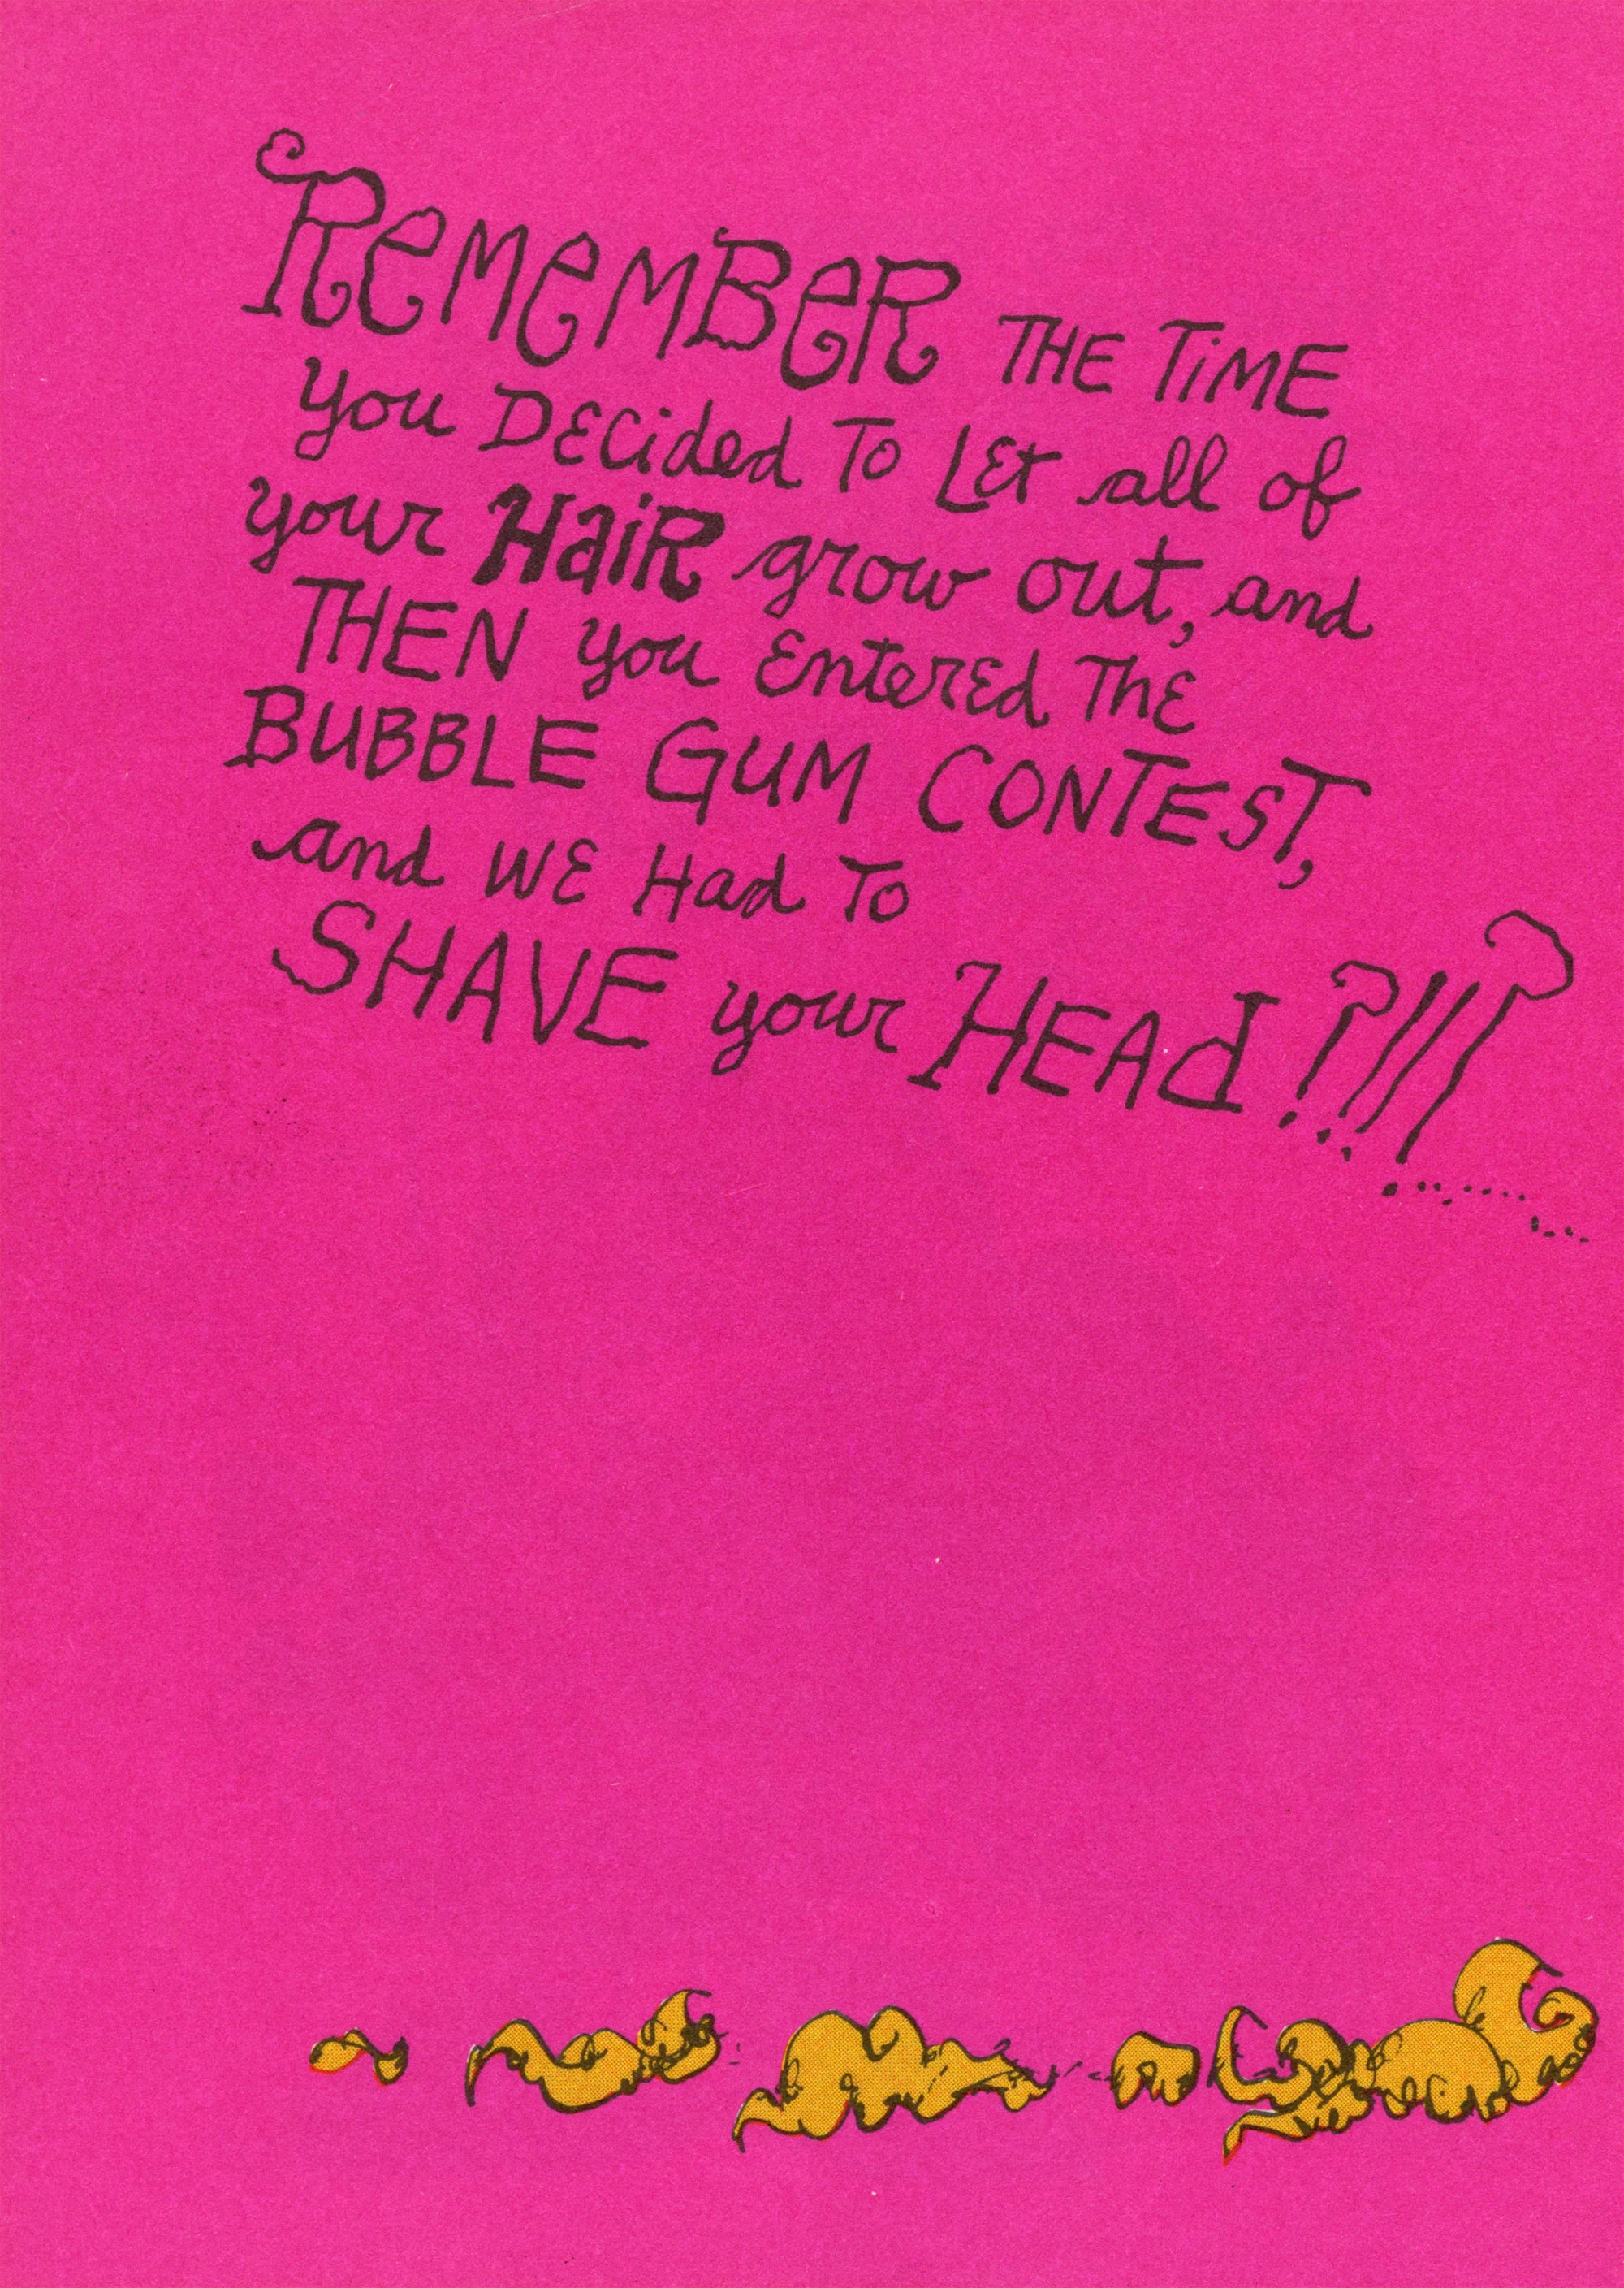 ReMeMBeR THE TiME
you DECided To LEt all of
your HaiR grow out, and
THEN you EnterEd ThE
BUBBLE GUM CONTEST,
and WE Had To
SHAVE your HEAd!?!!?..............